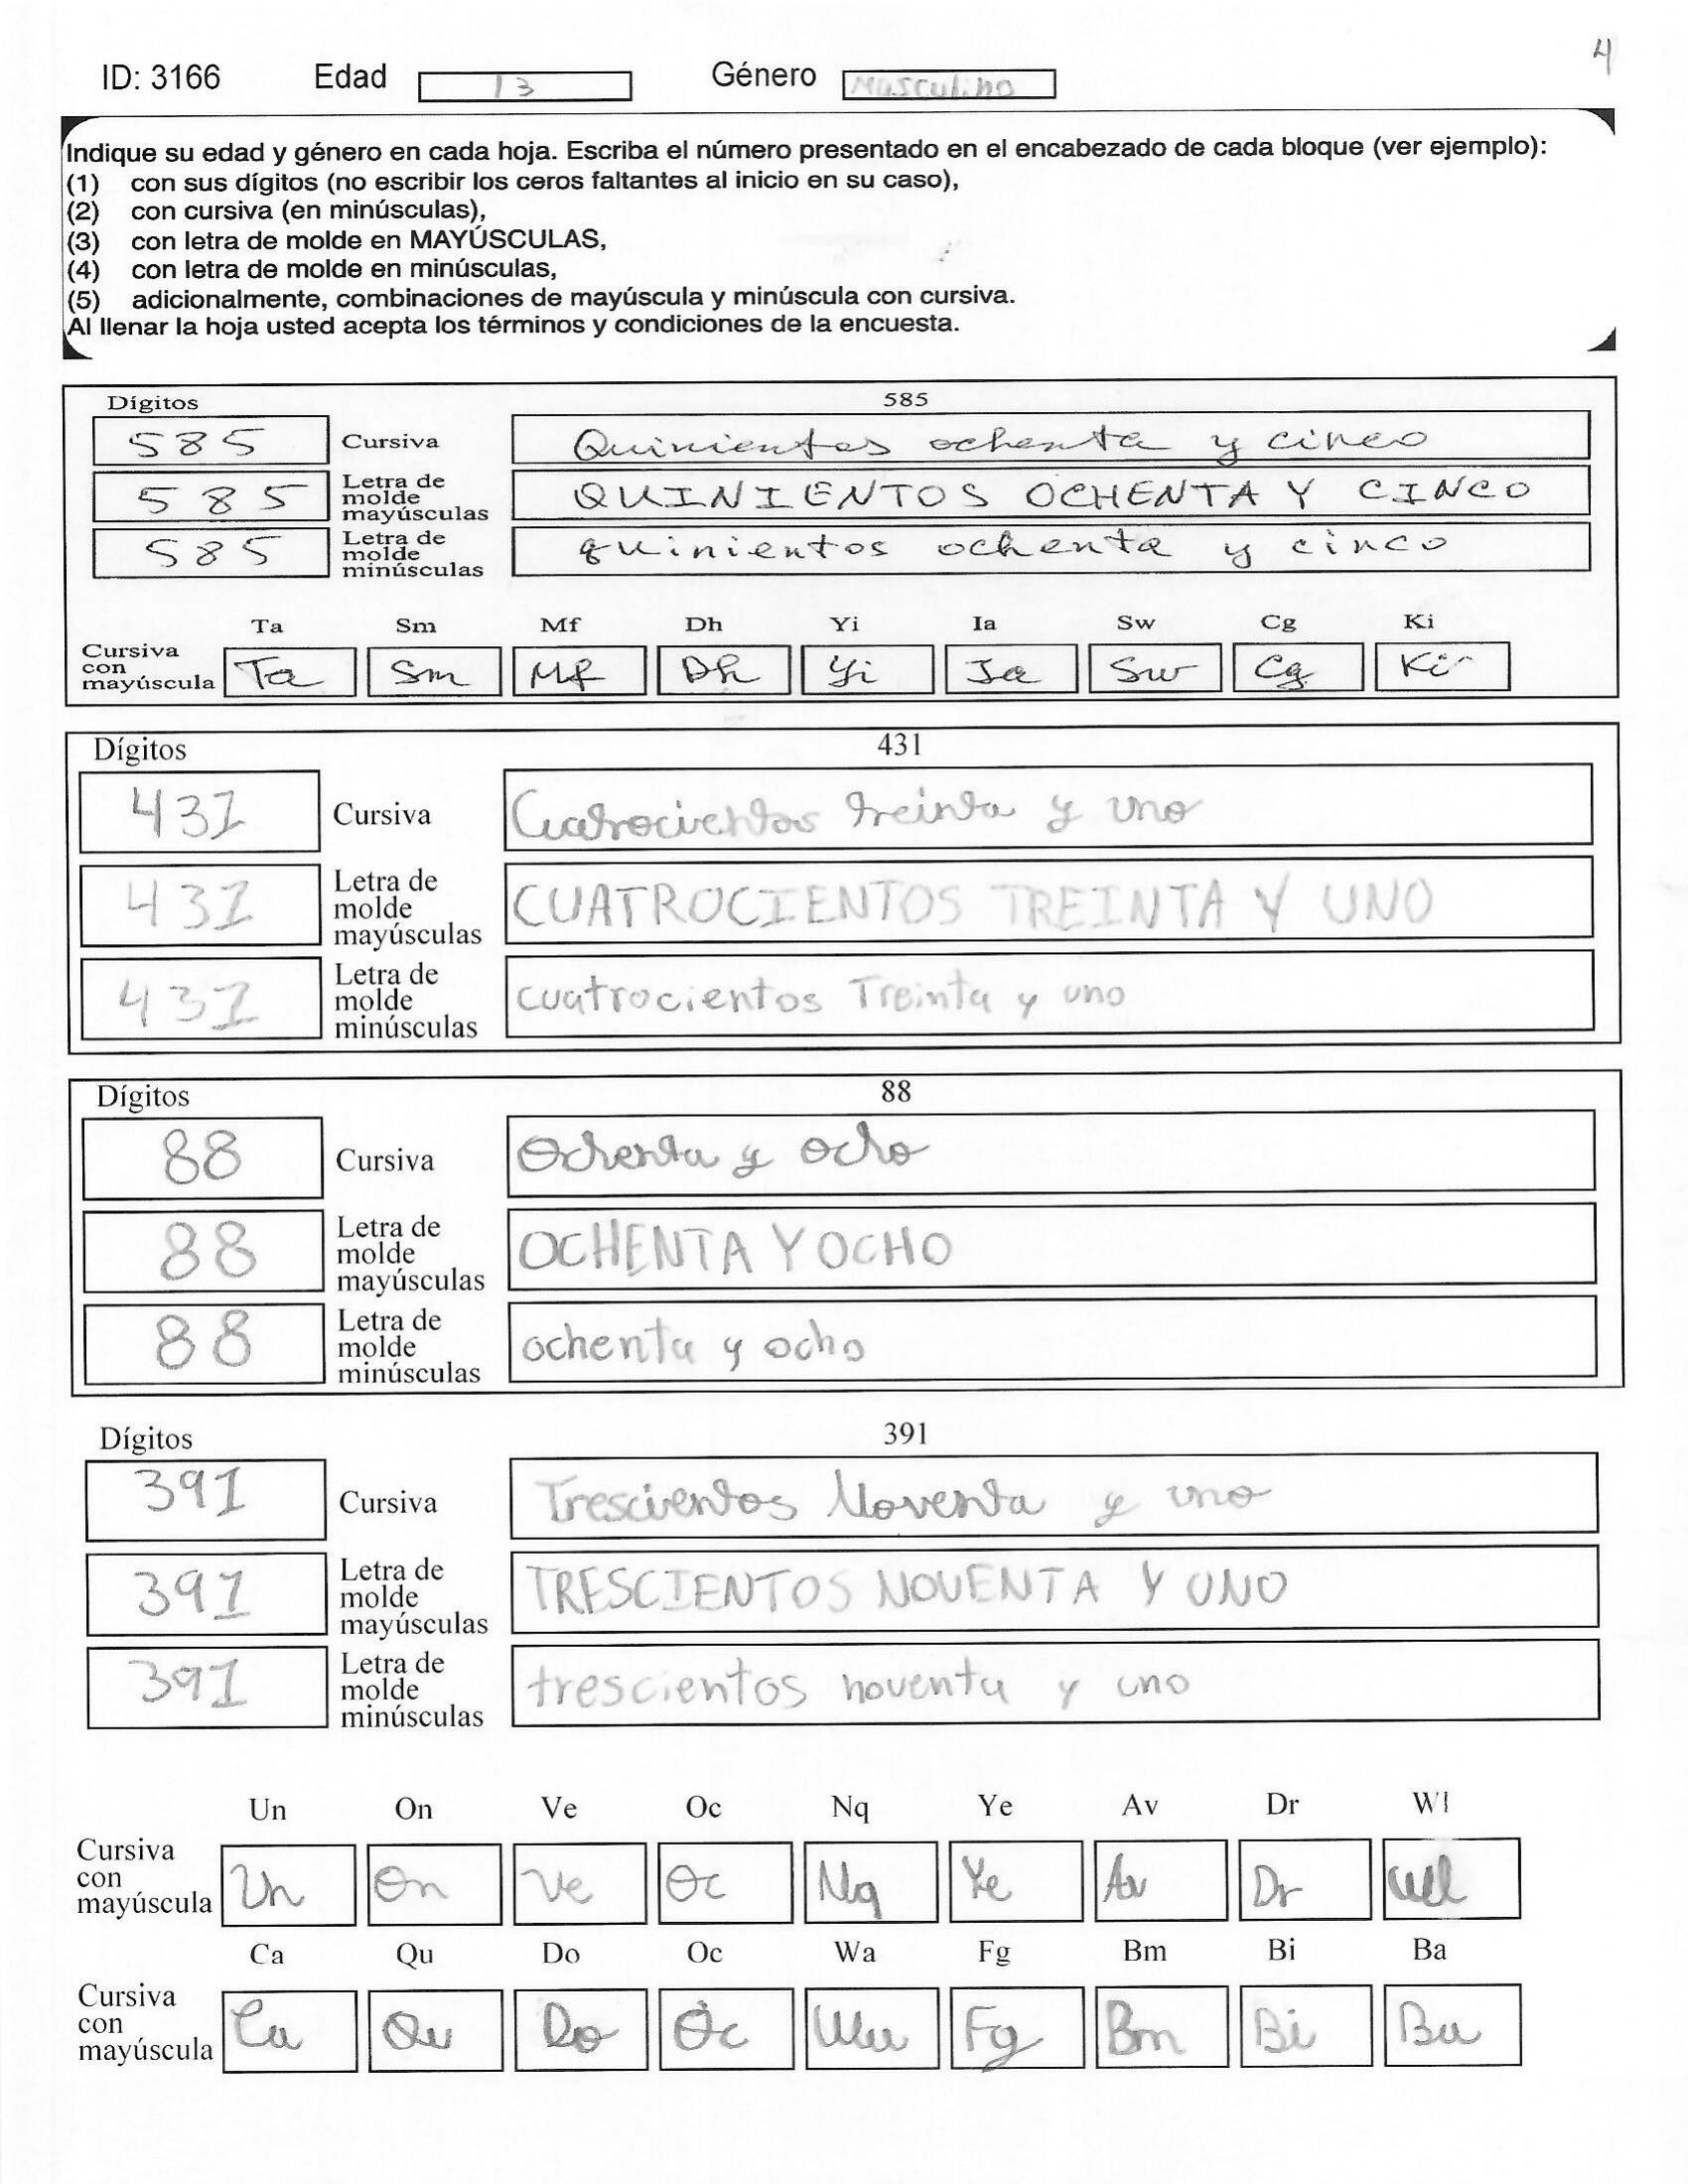 4
ID: 3166 Edad 13 Género Masculino
Indique su edad y género en cada hoja. Escriba el número presentado en el encabezado de cada bloque (ver ejemplo):
(1) con sus dígitos (no escribir los ceros faltantes al inicio en su caso),
(2) con cursiva (en minúsculas),
(3) con letra de molde en MAYÚSCULAS,
(4) con letra de molde en minúsculas,
(5) adicionalmente, combinaciones de mayúscula y minúscula con cursiva.
Al llenar la hoja usted acepta los términos y condiciones de la encuesta.
Dígitos 585
585 Cursiva Quinientos ochenta y cinco
585 Letra de molde mayúsculas QUINIENTOS OCHENTA Y CINCO
585 Letra de molde minúsculas quinientos ochenta y cinco
Ta Sm Mf Dh Yi Ia Sw Cg Ki
Cursiva con mayúscula Ta Sm Mf Dh Yi Ia Sw Cg Ki
Dígitos 431
431 Cursiva Cuatrocientos treinta y uno
431 Letra de molde mayúsculas CUATROCIENTOS TREINTA Y UNO
431 Letra de molde minúsculas cuatrocientos Treinta y uno
Dígitos 88
88 Cursiva Ochenta y ocho
88 Letra de molde mayúsculas OCHENTA Y OCHO
88 Letra de molde minúsculas ochenta y ocho
Dígitos 391
391 Cursiva Trescientos Noventa y uno
391 Letra de molde mayúsculas TRESCIENTOS NOVENTA Y UNO
391 Letra de molde minúsculas trescientos noventa y uno
Un On Ve Oc Nq Ye Av Dr Wl
Cursiva con mayúscula Un On Ve Oc Nq Ye Av Dr Wl
Ca Qu Do Oc Wa Fg Bm Bi Ba
Cursiva con mayúscula Ca Qu Do Oc Wa Fg Bm Bi Ba